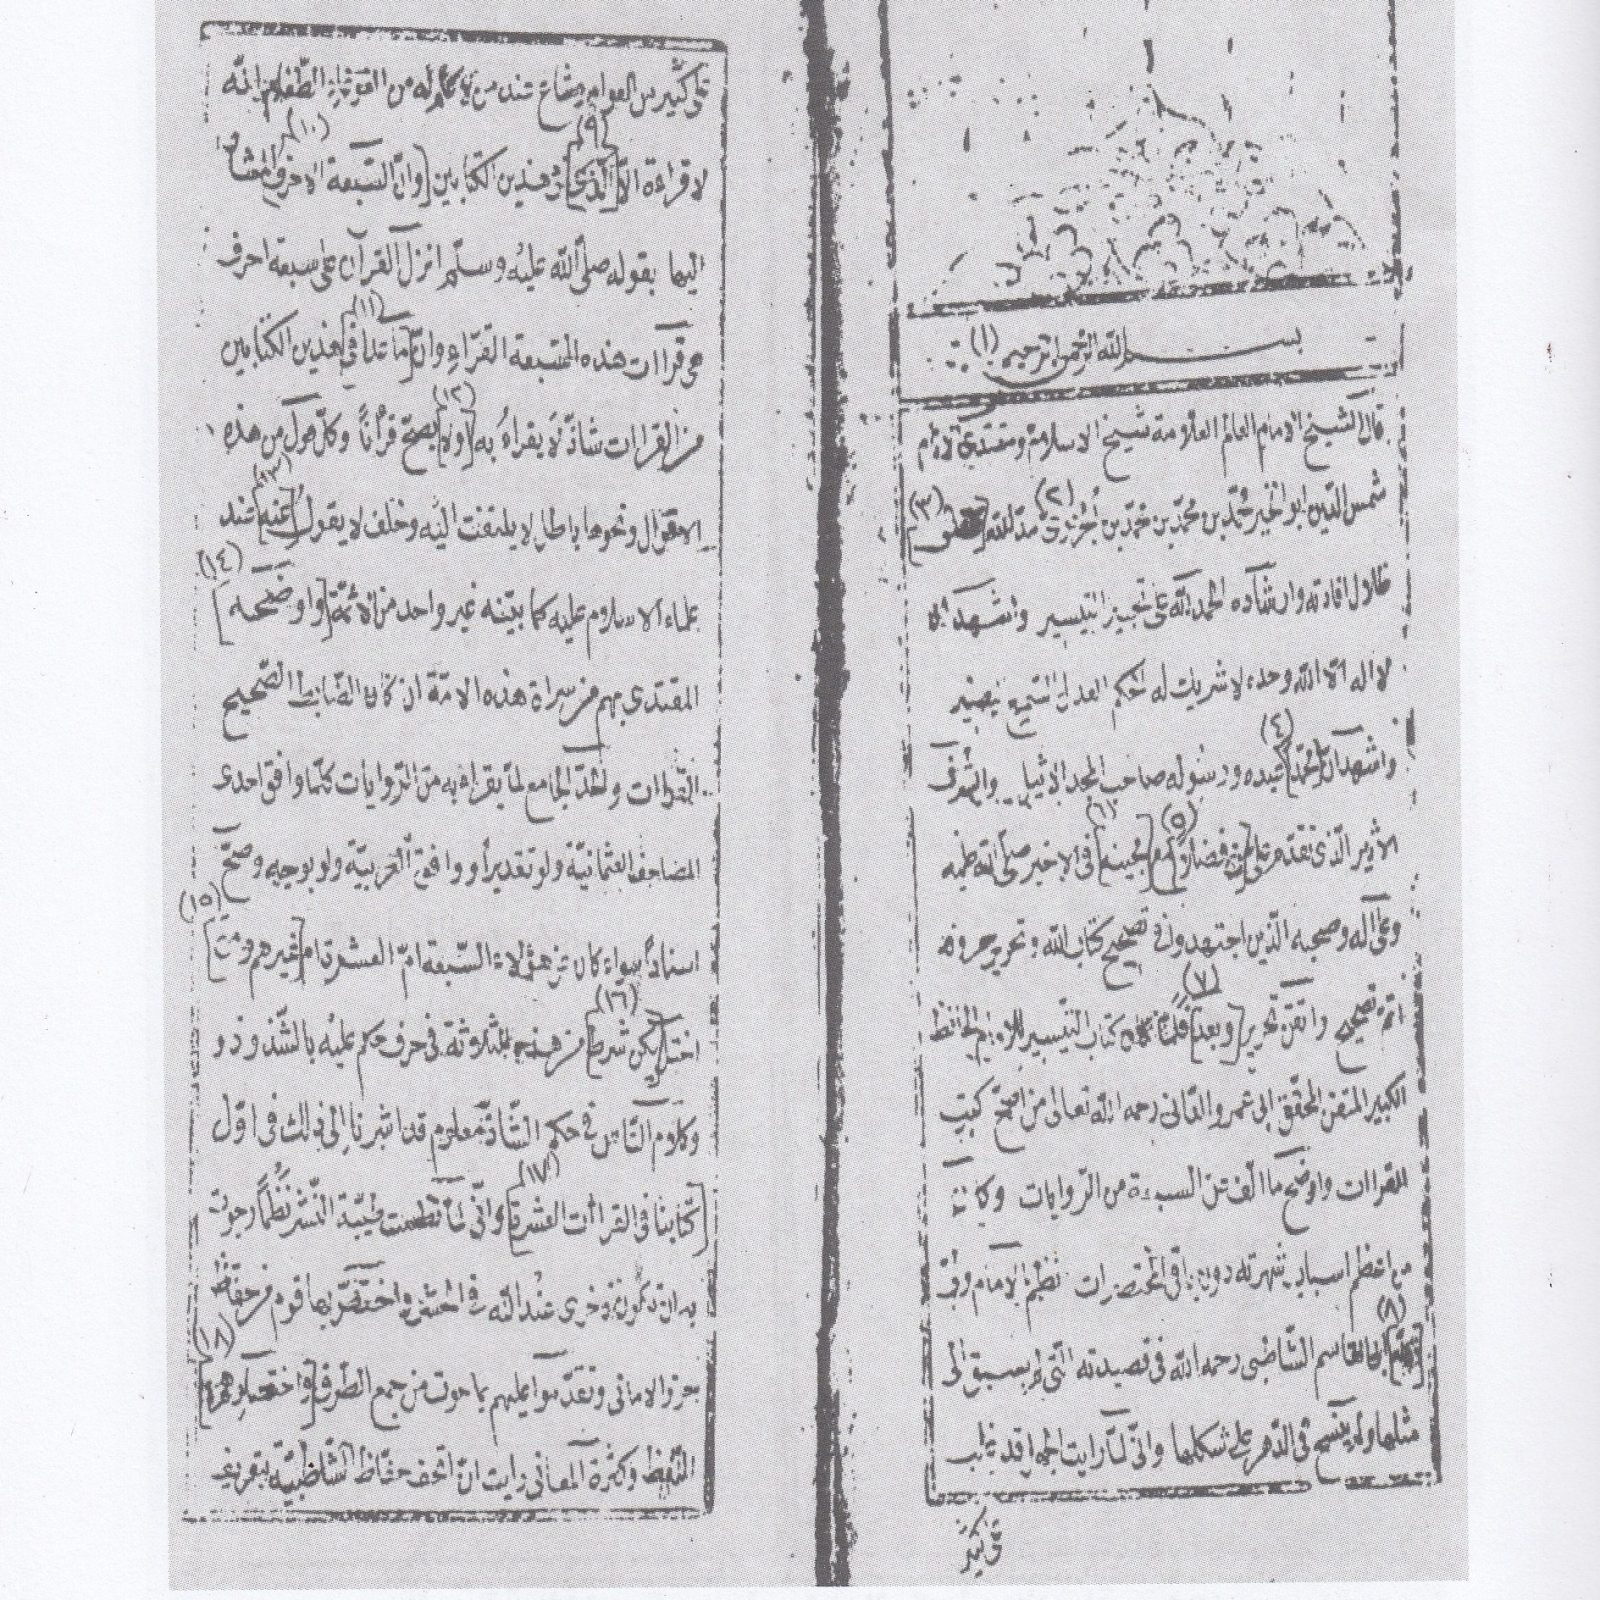 بسم الله الرحمن الرحيم (١)
قال الشيخ الامام العالم العلامة شيخ الاسلام ومقتدى الانام
شمس الدين ابو الخير محمد بن محمد بن محمد بن الجزرى (٢) مد الله (٣)
ظلال افادته وارشاده الحمد لله على تحبير التيسير واشهد ان
لا اله الا الله وحده لا شريك له الحكم العدل السميع البصير
واشهد ان [محمدا] (٤) عبده ورسوله صاحب المجد الاثيل والشرف
الاثير الذى تقدم على (٥) (٦) فى الاخير صلى الله عليه
وعلى آله وصحبه الذين اجتهدوا فى تصحيح كتاب الله وتحرير حروفه
اتم تصحيح واتقن تحرير [وبعد] (٧) فلما كان كتاب التيسير للامام الحافظ
الكبير المتقن المحقق ابى عمرو الدانى رحمه الله تعالى من اصح كتب
القراات واوضح ما الف عن السبعة من الروايات وكان
من اعظم اسباب شهرته دون باقى المختصرات نظم الامام ولى
(٨) ابى القاسم الشاطبى رحمه الله فى قصيدته التى لم يسبق الى
مثلها ولم ينسج فى الدهر على شكلها وانى لما رايت الجهل قد غلب
على كثير
على كثير من العوام وشاع عند من لا علم له من الطغام انه
لا قراءة الا [الذى] (٩) فى هذين الكتابين [وان (١٠) السبعة الاحرف المشار
اليها بقوله صلى الله عليه وسلم انزل القرآن على سبعة احرف
هى قراات هذه السبعة القراء وان [ما عدا ما فى] (١١) هذين الكتابين
من القراات شاذ لا يقراء به [ولا] (١٢) يصح قرأنا وكل قول من هذه
الاقوال ونحوها باطل لا يلتفت اليه وخلف لا يقول [عنه] (١٣) عند
علماء الاسلام عليه كما بينه غير واحد من الائمة [واوضحه] (١٤)
المقتدى بهم من سراة هذه الامة اذ كان الضابط الصحيح
القراات والحد الجامع لما يقراء به من الروايات كلما وافق احدى
المصاحف العثمانية ولو تقديرا ووافق العربية ولو بوجه وصح
اسنادا سواء كان عن هؤلاء السبعة ام العشرة ام [غيرهم ومتى] (١٥)
اختل [ركن شرط] (١٦) من هذه الثلاثة فى حرف حكم عليه بالشذوذ و
وكلام الناس فى حكم الشاذ معلوم قد اشرنا الى ذلك فى اول
[كتابنا فى القراأت العشرة] (١٧) وانى لما نظمت طيبة النشر نظما رجوت
به ان تكون ذخرى عند الله فى الحشر واختص بها قوم من حفاظ
حرز الامانى وتقدموا عليهم بما حوت من جمع الطرق [واختصار] (١٨)
اللفظ وكثرة المعانى رايت ان اتحف حفاظ الشاطبية بتعريف